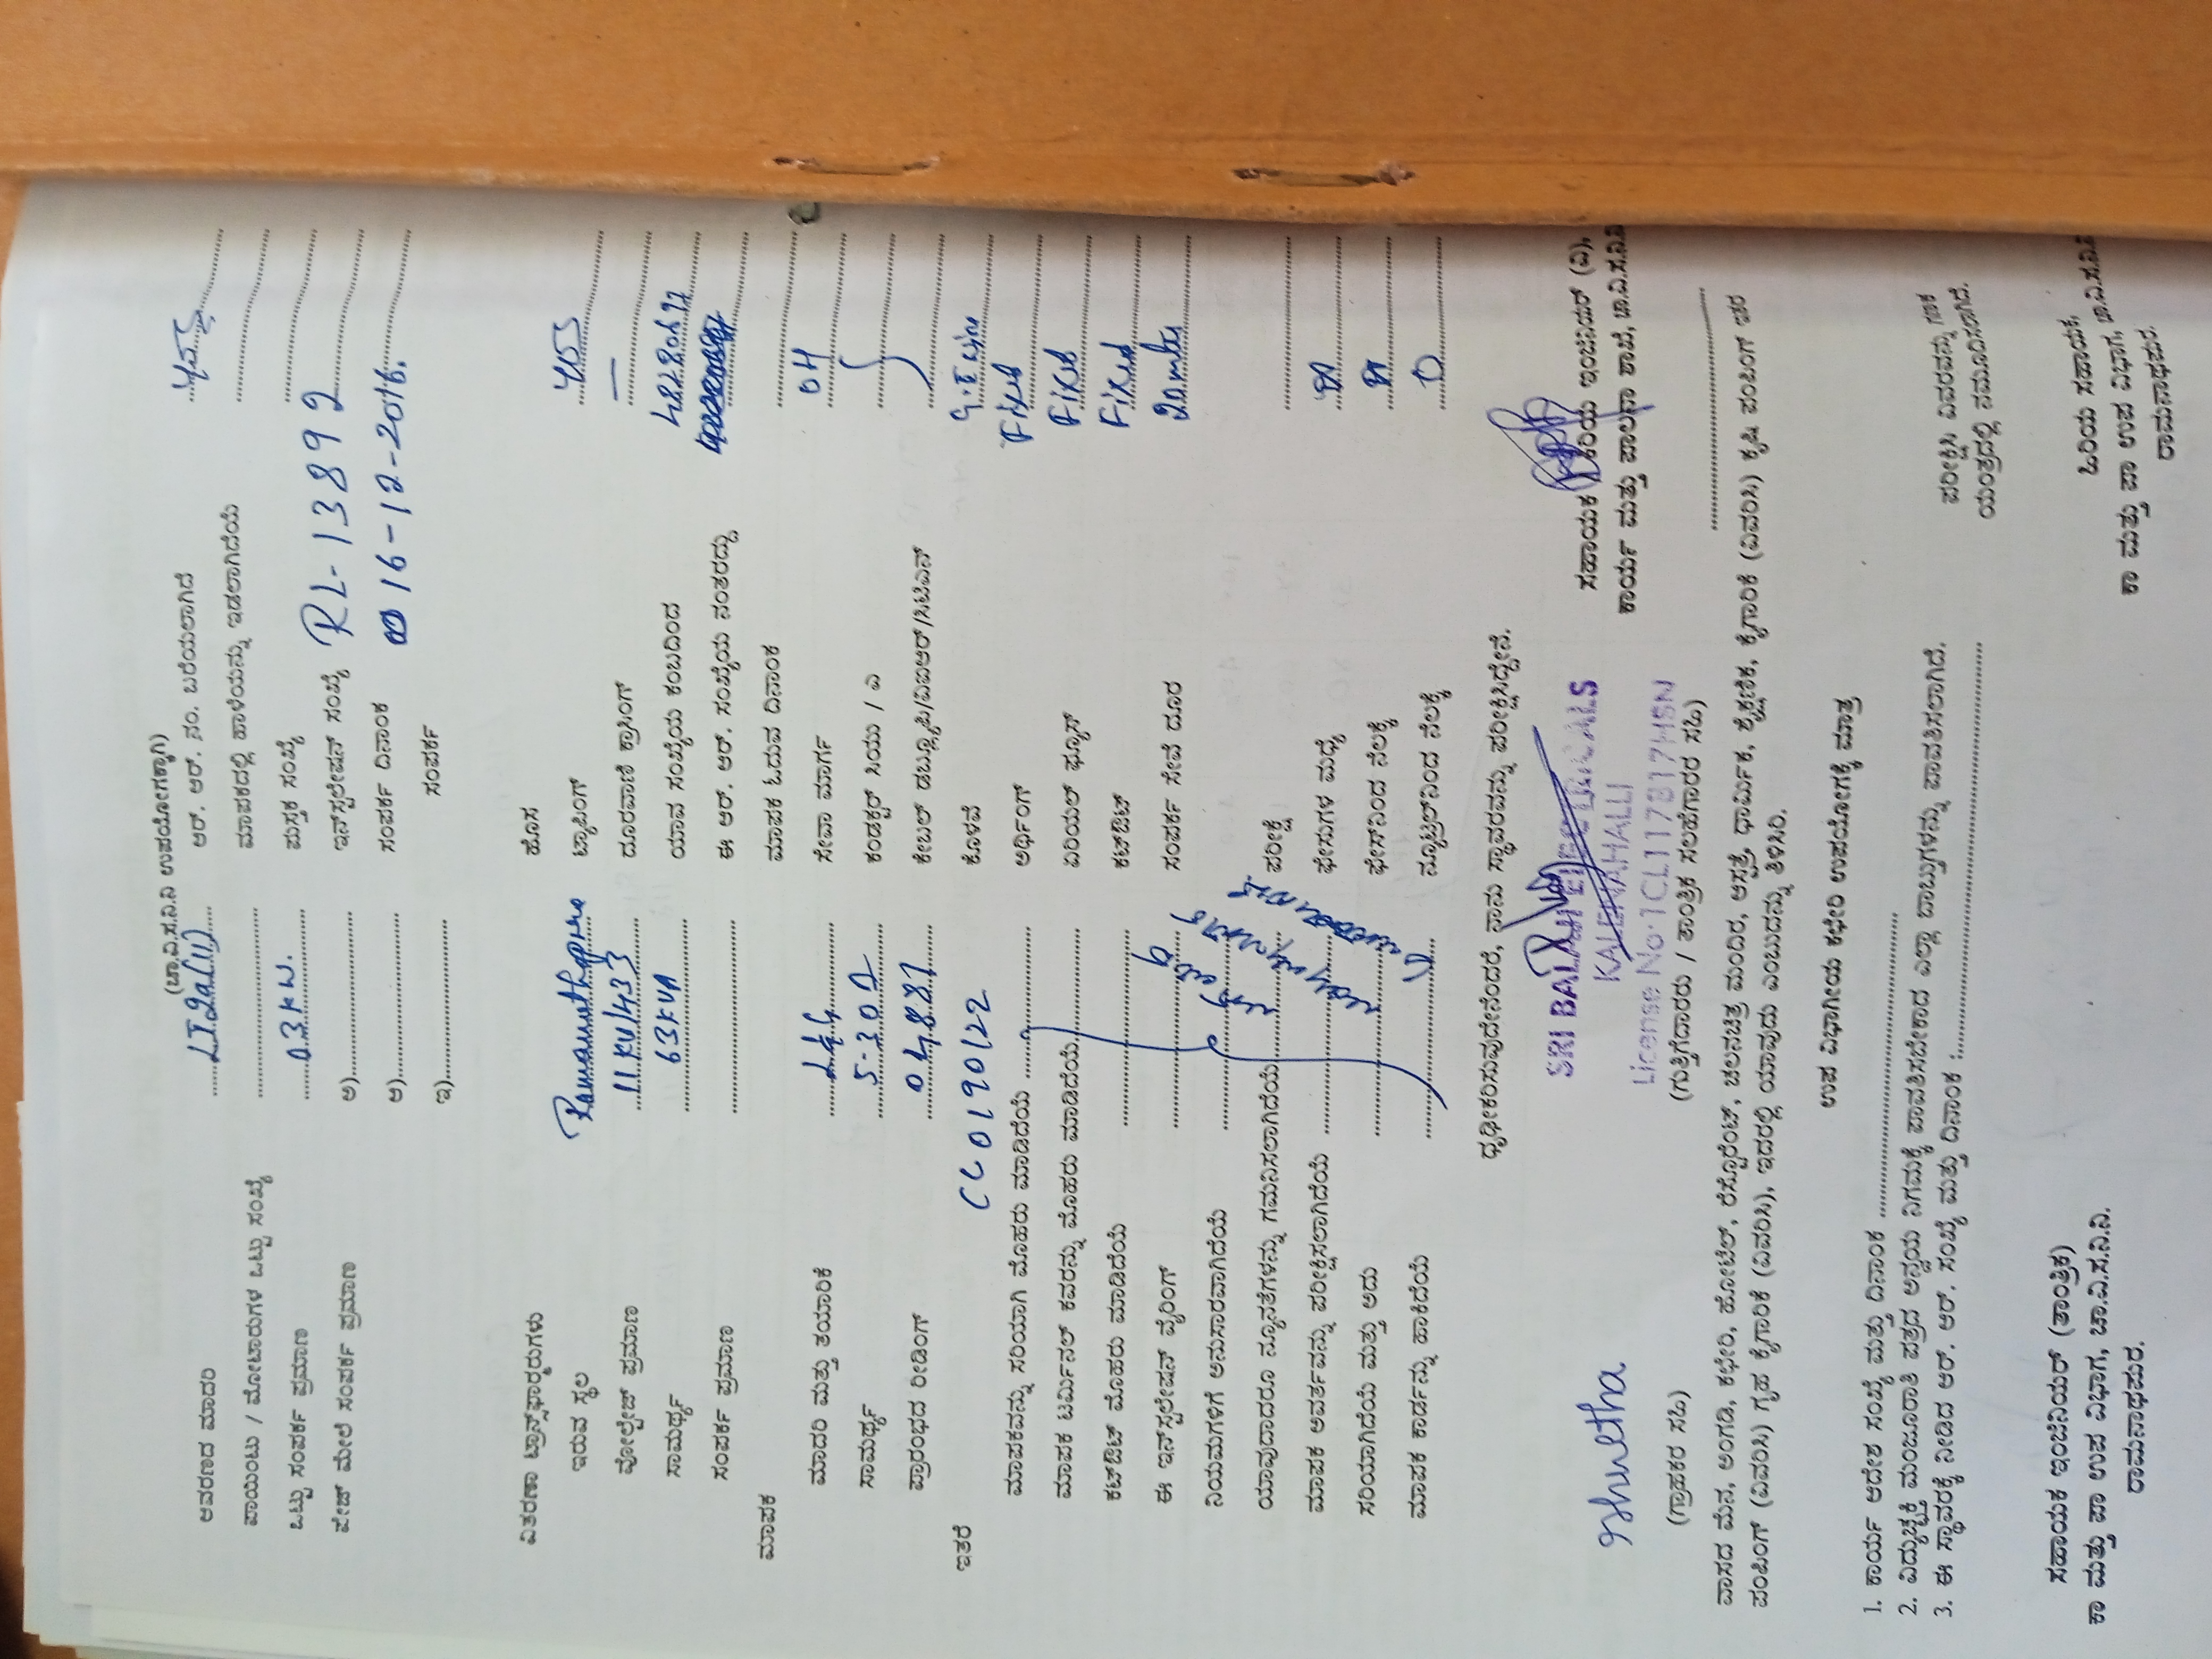 (ಚಾ.ವಿ.ಸ.ನಿ.ನಿ ಉಪಯೋಗಕ್ಕಾಗಿ)
ಆವರಣದ ಮಾದರಿ LT2a(ii) ಆರ್. ಆರ್. ನಂ. ಬರೆಯಲಾಗಿದೆ yes
ಪಾಯಿಂಟು / ಮೋಟಾರುಗಳ ಒಟ್ಟು ಸಂಖ್ಯೆ ಮಾಪಕದಲ್ಲಿ ಹಾಳೆಯನ್ನು ಇಡಲಾಗಿದೆಯೆ
ಒಟ್ಟು ಸಂಪರ್ಕ ಪ್ರಮಾಣ 03KW. ಮಸ್ತಕ ಸಂಖ್ಯೆ
ಪೇಜ್ ಮೇಲೆ ಸಂಪರ್ಕ ಪ್ರಮಾಣ ಅ) ಇನ್‌ಸ್ಟಲೇಷನ್ ಸಂಖ್ಯೆ RL-13892
ಆ) ಸಂಪರ್ಕ ದಿನಾಂಕ 16-12-2016.
ಇ) ಸಂಪರ್ಕ
ವಿತರಣಾ ಟ್ರಾನ್ಸ್‌ಫಾರ್ಮರುಗಳು ಹೊಸ
ಇರುವ ಸ್ಥಳ Ramanathapura ಟ್ಯಾಪಿಂಗ್ yes
ವೋಲ್ಟೇಜ್ ಪ್ರಮಾಣ 11KV/433 ದೂರವಾಣಿ ಕ್ರಾಸಿಂಗ್ —
ಸಾಮರ್ಥ್ಯ 63KVA ಯಾವ ಸಂಖ್ಯೆಯ ಕಂಬದಿಂದ
ಸಂಪರ್ಕ ಪ್ರಮಾಣ ಈ ಆರ್. ಆರ್. ಸಂಖ್ಯೆಯ ನಂತರದ್ದು
ಮಾಪಕ ಮಾಪಕ ಓದುವ ದಿನಾಂಕ
ಮಾದರಿ ಮತ್ತು ತಯಾರಿಕೆ L&G ಸೇವಾ ಮಾರ್ಗ OH
ಸಾಮರ್ಥ್ಯ 5-30A ಕಂಡಕ್ಟರ್ ಸಿಯು / ಎ
ಪ್ರಾರಂಭದ ರೀಡಿಂಗ್ 04887 ಕೇಬಲ್ ಡಬ್ಲ್ಯೂಪಿ/ವಿಐಆರ್/ಸಿಟಿಎಸ್
ಇತರೆ CC0190122 ಕೊಳವೆ
ಮಾಪಕವನ್ನು ಸರಿಯಾಗಿ ಮೊಹರು ಮಾಡಿದೆಯೆ ಅರ್ಥಿಂಗ್ Fixed
ಮಾಪಕ ಟರ್ಮಿನಲ್ ಕವರನ್ನು ಮೊಹರು ಮಾಡಿದೆಯೆ ಏರಿಯಲ್ ಫ್ಯೂಸ್ Fixed
ಕಟ್‌ಔಟ್ ಮೊಹರು ಮಾಡಿದೆಯೆ ಕಟ್‌ಔಟ್ Fixed
ಈ ಇನ್‌ಸ್ಟಲೇಷನ್ ವೈರಿಂಗ್ ಸಂಪರ್ಕ ಸೇವೆ ದೂರ 20mtr
ನಿಯಮಗಳಿಗೆ ಅನುಸಾರವಾಗಿದೆಯೆ
ಯಾವುದಾದರೂ ನ್ಯೂನತೆಗಳನ್ನು ಗಮನಿಸಲಾಗಿದೆಯೆ ಪರೀಕ್ಷೆ
ಮಾಪಕ ಆವರ್ತವನ್ನು ಪರೀಕ್ಷಿಸಲಾಗಿದೆಯೆ ಫೇಸುಗಳ ಮಧ್ಯೆ
ಸರಿಯಾಗಿದೆಯೆ ಮತ್ತು ಅದು ಫೇಸ್‌ನಿಂದ ನೆಲಕ್ಕೆ
ಮಾಪಕ ಕಾರ್ಡನ್ನು ಹಾಕಿದೆಯೆ ನ್ಯೂಟ್ರಲ್‌ನಿಂದ ನೆಲಕ್ಕೆ 0
ಧೃಢೀಕರಿಸುವುದೇನೆಂದರೆ, ನಾನು ಸ್ಥಾವರವನ್ನು ಪರೀಕ್ಷಿಸಿದ್ದೇನೆ.
SRI BALAJI ELECTRICALS
KALENAHALLI
License No.1CL117817HSN
ಸಹಾಯಕ ಕಿರಿಯ ಇಂಜಿನಿಯರ್ (ವಿ),
ಕಾರ್ಯ ಮತ್ತು ಪಾಲನಾ ಶಾಖೆ, ಚಾ.ವಿ.ಸ.ನಿ.ನಿ
Shwetha
(ಗ್ರಾಹಕರ ಸಹಿ) (ಗುತ್ತಿಗೆದಾರರು / ತಾಂತ್ರಿಕ ಸಲಹೆಗಾರರ ಸಹಿ)
ವಾಸದ ಮನೆ, ಅಂಗಡಿ, ಕಛೇರಿ, ಹೋಟೆಲ್, ರೆಸ್ಟೋರೆಂಟ್, ಚಲನಚಿತ್ರ ಮಂದಿರ, ಆಸ್ಪತ್ರೆ, ಧಾರ್ಮಿಕ, ಶೈಕ್ಷಣಿಕ, ಕೈಗಾರಿಕೆ (ವಿವರಿಸಿ) ಕೃಷಿ ಪಂಪಿಂಗ್ ಇತರ
ಪಂಪಿಂಗ್ (ವಿವರಿಸಿ) ಗೃಹ ಕೈಗಾರಿಕೆ (ವಿವರಿಸಿ), ಇದರಲ್ಲಿ ಯಾವುದು ಎಂಬುದನ್ನು ತಿಳಿಸಿರಿ.
ಉಪ ವಿಭಾಗೀಯ ಕಛೇರಿ ಉಪಯೋಗಕ್ಕೆ ಮಾತ್ರ
1. ಕಾರ್ಯ ಆದೇಶ ಸಂಖ್ಯೆ ಮತ್ತು ದಿನಾಂಕ
2. ವಿದ್ಯುಚ್ಛಕ್ತಿ ಮಂಜೂರಾತಿ ಪತ್ರದ ಅನ್ವಯ ನಿಗಮಕ್ಕೆ ಪಾವತಿಸಬೇಕಾದ ಎಲ್ಲಾ ಬಾಬ್ತುಗಳನ್ನು ಪಾವತಿಸಲಾಗಿದೆ.
3. ಈ ಸ್ಥಾವರಕ್ಕೆ ನೀಡಿದ ಆರ್. ಆರ್. ಸಂಖ್ಯೆ ಮತ್ತು ದಿನಾಂಕ :
ಪರೀಕ್ಷಿಸಿ ವಿವರವನ್ನು ಗಣಕ
ಯಂತ್ರದಲ್ಲಿ ನಮೂದಿಸಲಾಗಿದೆ.
ಸಹಾಯಕ ಇಂಜಿನಿಯರ್ (ತಾಂತ್ರಿಕ) ಹಿರಿಯ ಸಹಾಯಕ,
ಕಾ ಮತ್ತು ಪಾ ಉಪ ವಿಭಾಗ, ಚಾ.ವಿ.ಸ.ನಿ.ನಿ. ಕಾ ಮತ್ತು ಪಾ ಉಪ ವಿಭಾಗ, ಚಾ.ವಿ.ಸ.ನಿ.ನಿ
ರಾಮನಾಥಪುರ. ರಾಮನಾಥಪುರ.